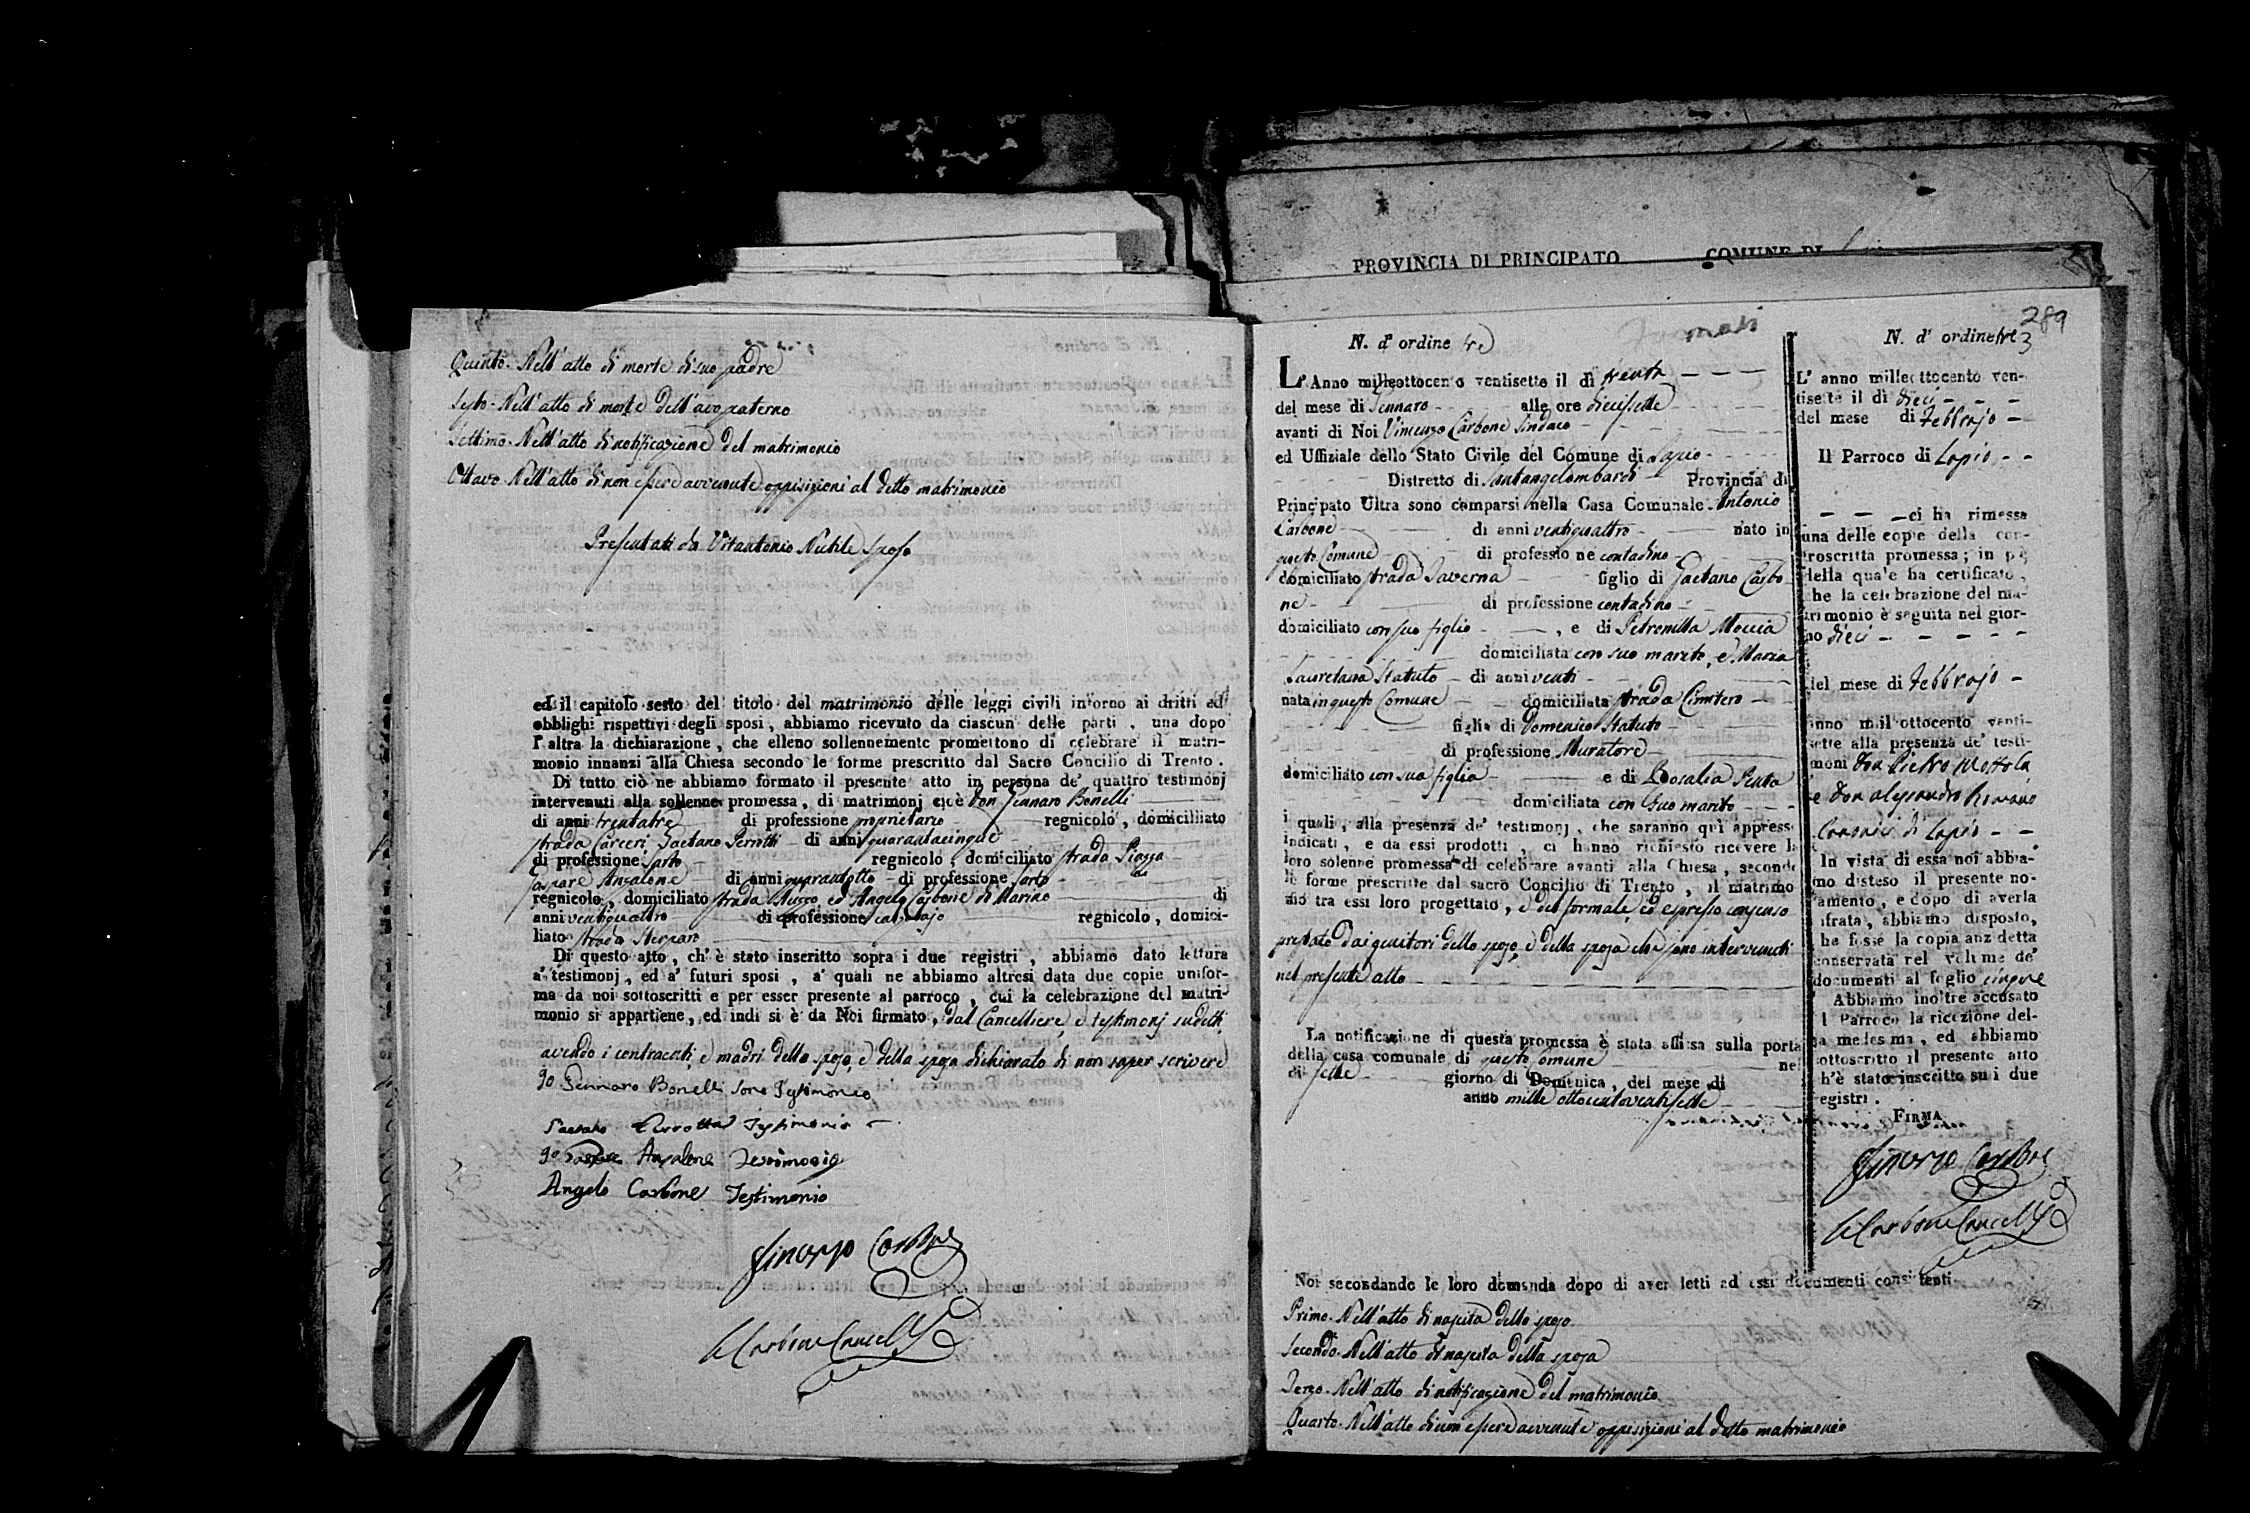 Quinto. Nell' atto di morte di suo padre
Sesto. Nell' atto di morte dell' avo paterno
Settimo. Nell' atto di notificazione del matrimonio
Ottavo. Nell' atto di non essere avvenute opposizioni al detto matrimonio
Presentati da Vitantonio Nutile sposo
ed il capitolo sesto del titolo del matrimonio delle leggi civili intorno ai dritti ed
obblighi rispettivi degli sposi, abbiamo ricevuto da ciascun delle parti, una dopo
l' altra la dichiarazione, che elleno sollennemente promettono di celebrare il matri-
monio innanzi alla Chiesa secondo le forme prescritto dal Sacro Concilio di Trento.
Di tutto ciò ne abbiamo formato il presente atto in persona de' quattro testimonj
intervenuti alla sollenne promessa, di matrimonj cioè Don Gennaro Bonelli
di anni trentatre di professione proprietario regnicolo, domiciliiato
strada Carceri, Gaetano Perrotti di anni quarantacinque
di professione Sarto regnicolo, domiciliato strada Piazza
Gaspare Ansalone di anni quarantotto di professione sarto
regnicolo, domiciliato strada ed Angelo Carbone di Marino di
anni ventiquattro di professione regnicolo, domici-
liato strada
Di questo atto, ch' è stato inscritto sopra i due registri, abbiamo dato lettura
a' testimonj, ed a' futuri sposi, a' quali ne abbiamo altresì data due copie unifor-
me da noi sottoscritti e per esser presente al parroco, cui la celebrazione del matri-
monio si appartiene, ed indi si è da Noi firmato, dal Cancelliere, e testimonj sudetti
avendo i contraenti, e madri dello sposo, e della sposa dichiarato di non saper scrivere
Io Gennaro Bonelli sono Testimonio
Gaetano Perrotta Testimonio
Io Gaspare Ansalone Testimonio
Angelo Carbone Testimonio
Vincenzo Carbone
Carbone Cancell
PROVINCIA DI PRINCIPATO COMUNE DI
289
N. d' ordine tre
L' Anno milleottocento ventisette il dì trenta
del mese di Gennaro alle ore diecisette
avanti di Noi Vincenzo Carbone Sindaco
ed Uffiziale dello Stato Civile del Comune di Lapio
Distretto di Santangelombardi Provincia di
Principato Ultra sono comparsi nella Casa Comunale Antonio
Carbone di anni ventiquattro nato in
questo Comune di professione contadino
domiciliato strada Taverna figlio di Gaetano Carbo-
ne di professione contadino
domiciliato con suo figlio, e di Petronilla Moccia
domiciliata con suo marito, e Maria
Lauretana Statuto di anni venti
nata in questo Comune domiciliata strada Cimitero
figlia di Domenico Statuto
di professione Muratore
domiciliato con sua figlia e di Rosalia Penta
domiciliata con suo marito
i quali, alla presenza de' testimonj, che saranno quì appresso
indicati, e da essi prodotti, ci hanno richiesto ricevere la
loro solenne promessa di celebrare avanti alla Chiesa, secondo
le forme prescritte dal sacro Concilio di Trento, il matrimo
nio tra essi loro progettato, e del formale, ed espresso consenso
prestato dai genitori dello sposo, e della sposa che sono intervenuti
nel presente atto
La notificazione di questa promessa è stata affissa sulla porta
della casa comunale di questo Comune ne
di sette giorno di Domenica, del mese di
anno mille ottocentoventisette
N. d' ordine tre 3
L' anno milleottocento ven-
tisette il dì dieci
del mese di Febbrajo
Il Parroco di Lapio
ci ha rimessa
una delle copie della con-
troscritta promessa; in piè
della quale ha certificato,
che la celebrazione del ma-
trimonio è seguita nel gior-
no dieci
del mese di Febbrajo
anno mill'ottocento venti-
sette alla presenza de' testi-
moni Don Pietro Mottola
e Don Alessandro Romano
Canonici di Lapio
In vista di essa noi abbia-
mo disteso il presente no-
tamento, e dopo di averla
cifrata, abbiamo disposto,
che fosse la copia anzidetta
conservata nel volume de'
documenti al foglio cinque
Abbiamo inoltre accusato
al Parroco la ricezione del-
la medesima, ed abbiamo
sottoscritto il presente atto
ch'è stato inscritto su i due
registri.
FIRMA
Vincenzo Carbone
Carbone Cancell
Noi secondando le loro domanda dopo di aver letti ad essi documenti consistenti
Primo. Nell' atto di nascita dello sposo
Secondo. Nell' atto di nascita della sposa
Terzo. Nell' atto di notificazione del matrimonio
Quarto. Nell' atto di non essere avvenute opposizioni al detto matrimonio